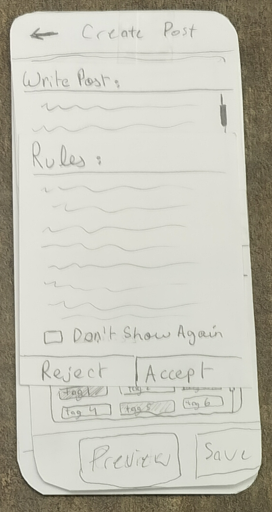 ← Create Post
Write Post:
Rules:
Don't Show Again
Reject Accept
Tag 4 Tag 5 Tag 6
Preview Save